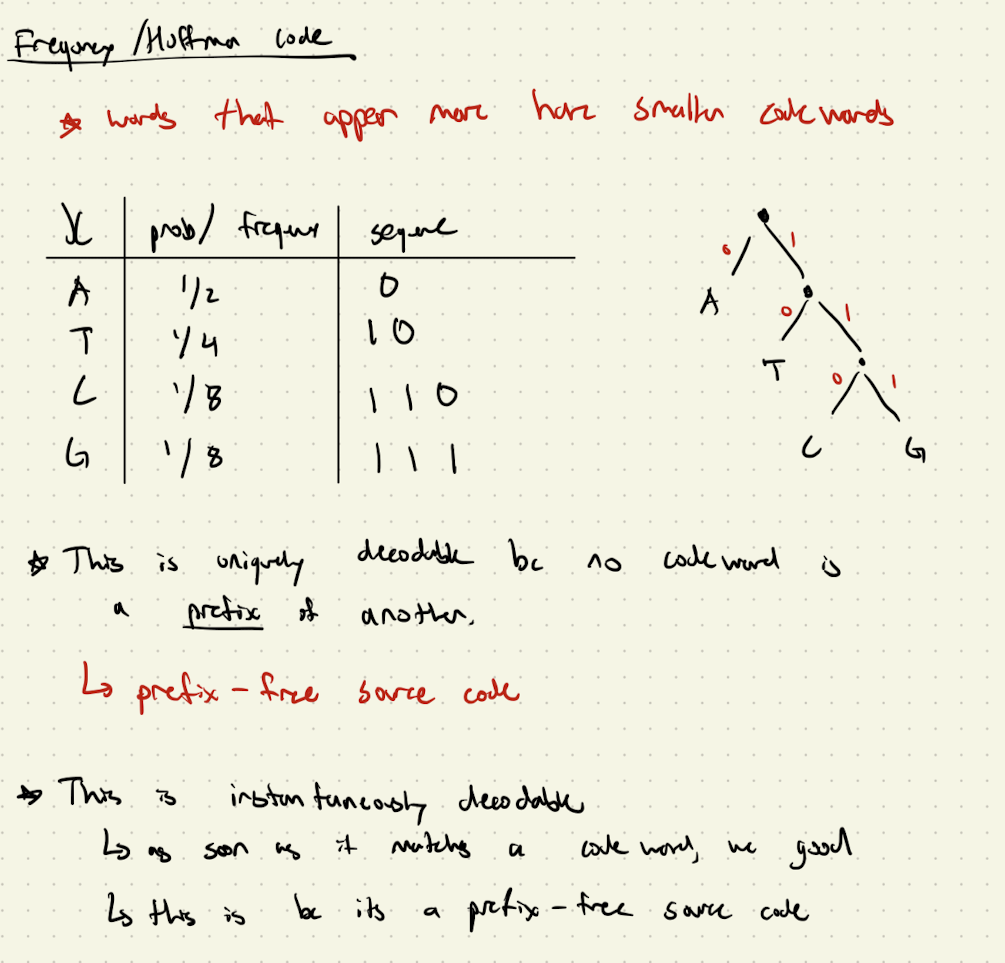 Frequency /Huffman code
☆ words that appear more have smaller codewords
X prob/ frequency sequence
A 1/2 0
T 1/4 10
C 1/8 110
G 1/8 111
0 1
A
0 1
T
0 1
C G
☆ This is uniquely decodable bc no codeword is
a prefix of another.
↳ prefix-free source code
☆ This is instantaneously decodable
↳ as soon as it matches a code word, we good
↳ this is bc its a prefix-free source code